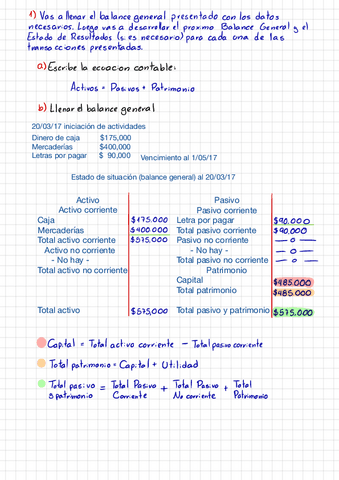 1) Vas a llenar el balance general presentado con los datos
necesarios. Luego vas a desarrollar el proximo Balance General y el
Estado de Resultados (si es necesario) para cada una de las
transacciones presentadas.
a) Escribe la ecuacion contable:
Activos = Pasivos + Patrimonio
b) Llenar el balance general
20/03/17 iniciación de actividades
Dinero de caja $175,000
Mercaderías $400,000
Letras por pagar $ 90,000 Vencimiento al 1/05/17
Estado de situación (balance general) al 20/03/17
Activo Pasivo
Activo corriente Pasivo corriente
Caja $175.000 Letra por pagar $90.000
Mercaderías $400.000 Total pasivo corriente $90.000
Total activo corriente $575.000 Pasivo no corriente — 0 —
Activo no corriente - No hay - — 0 —
- No hay - Total pasivo no corriente — 0 —
Total activo no corriente Patrimonio
Capital $485.000
Total patrimonio $485.000
Total activo $575,000 Total pasivo y patrimonio $575.000
Capital = Total activo corriente - Total pasivo corriente
Total patrimonio = Capital + Utilidad
Total pasivo = Total Pasivo + Total Pasivo + Total
y patrimonio Corriente No corriente Patrimonio